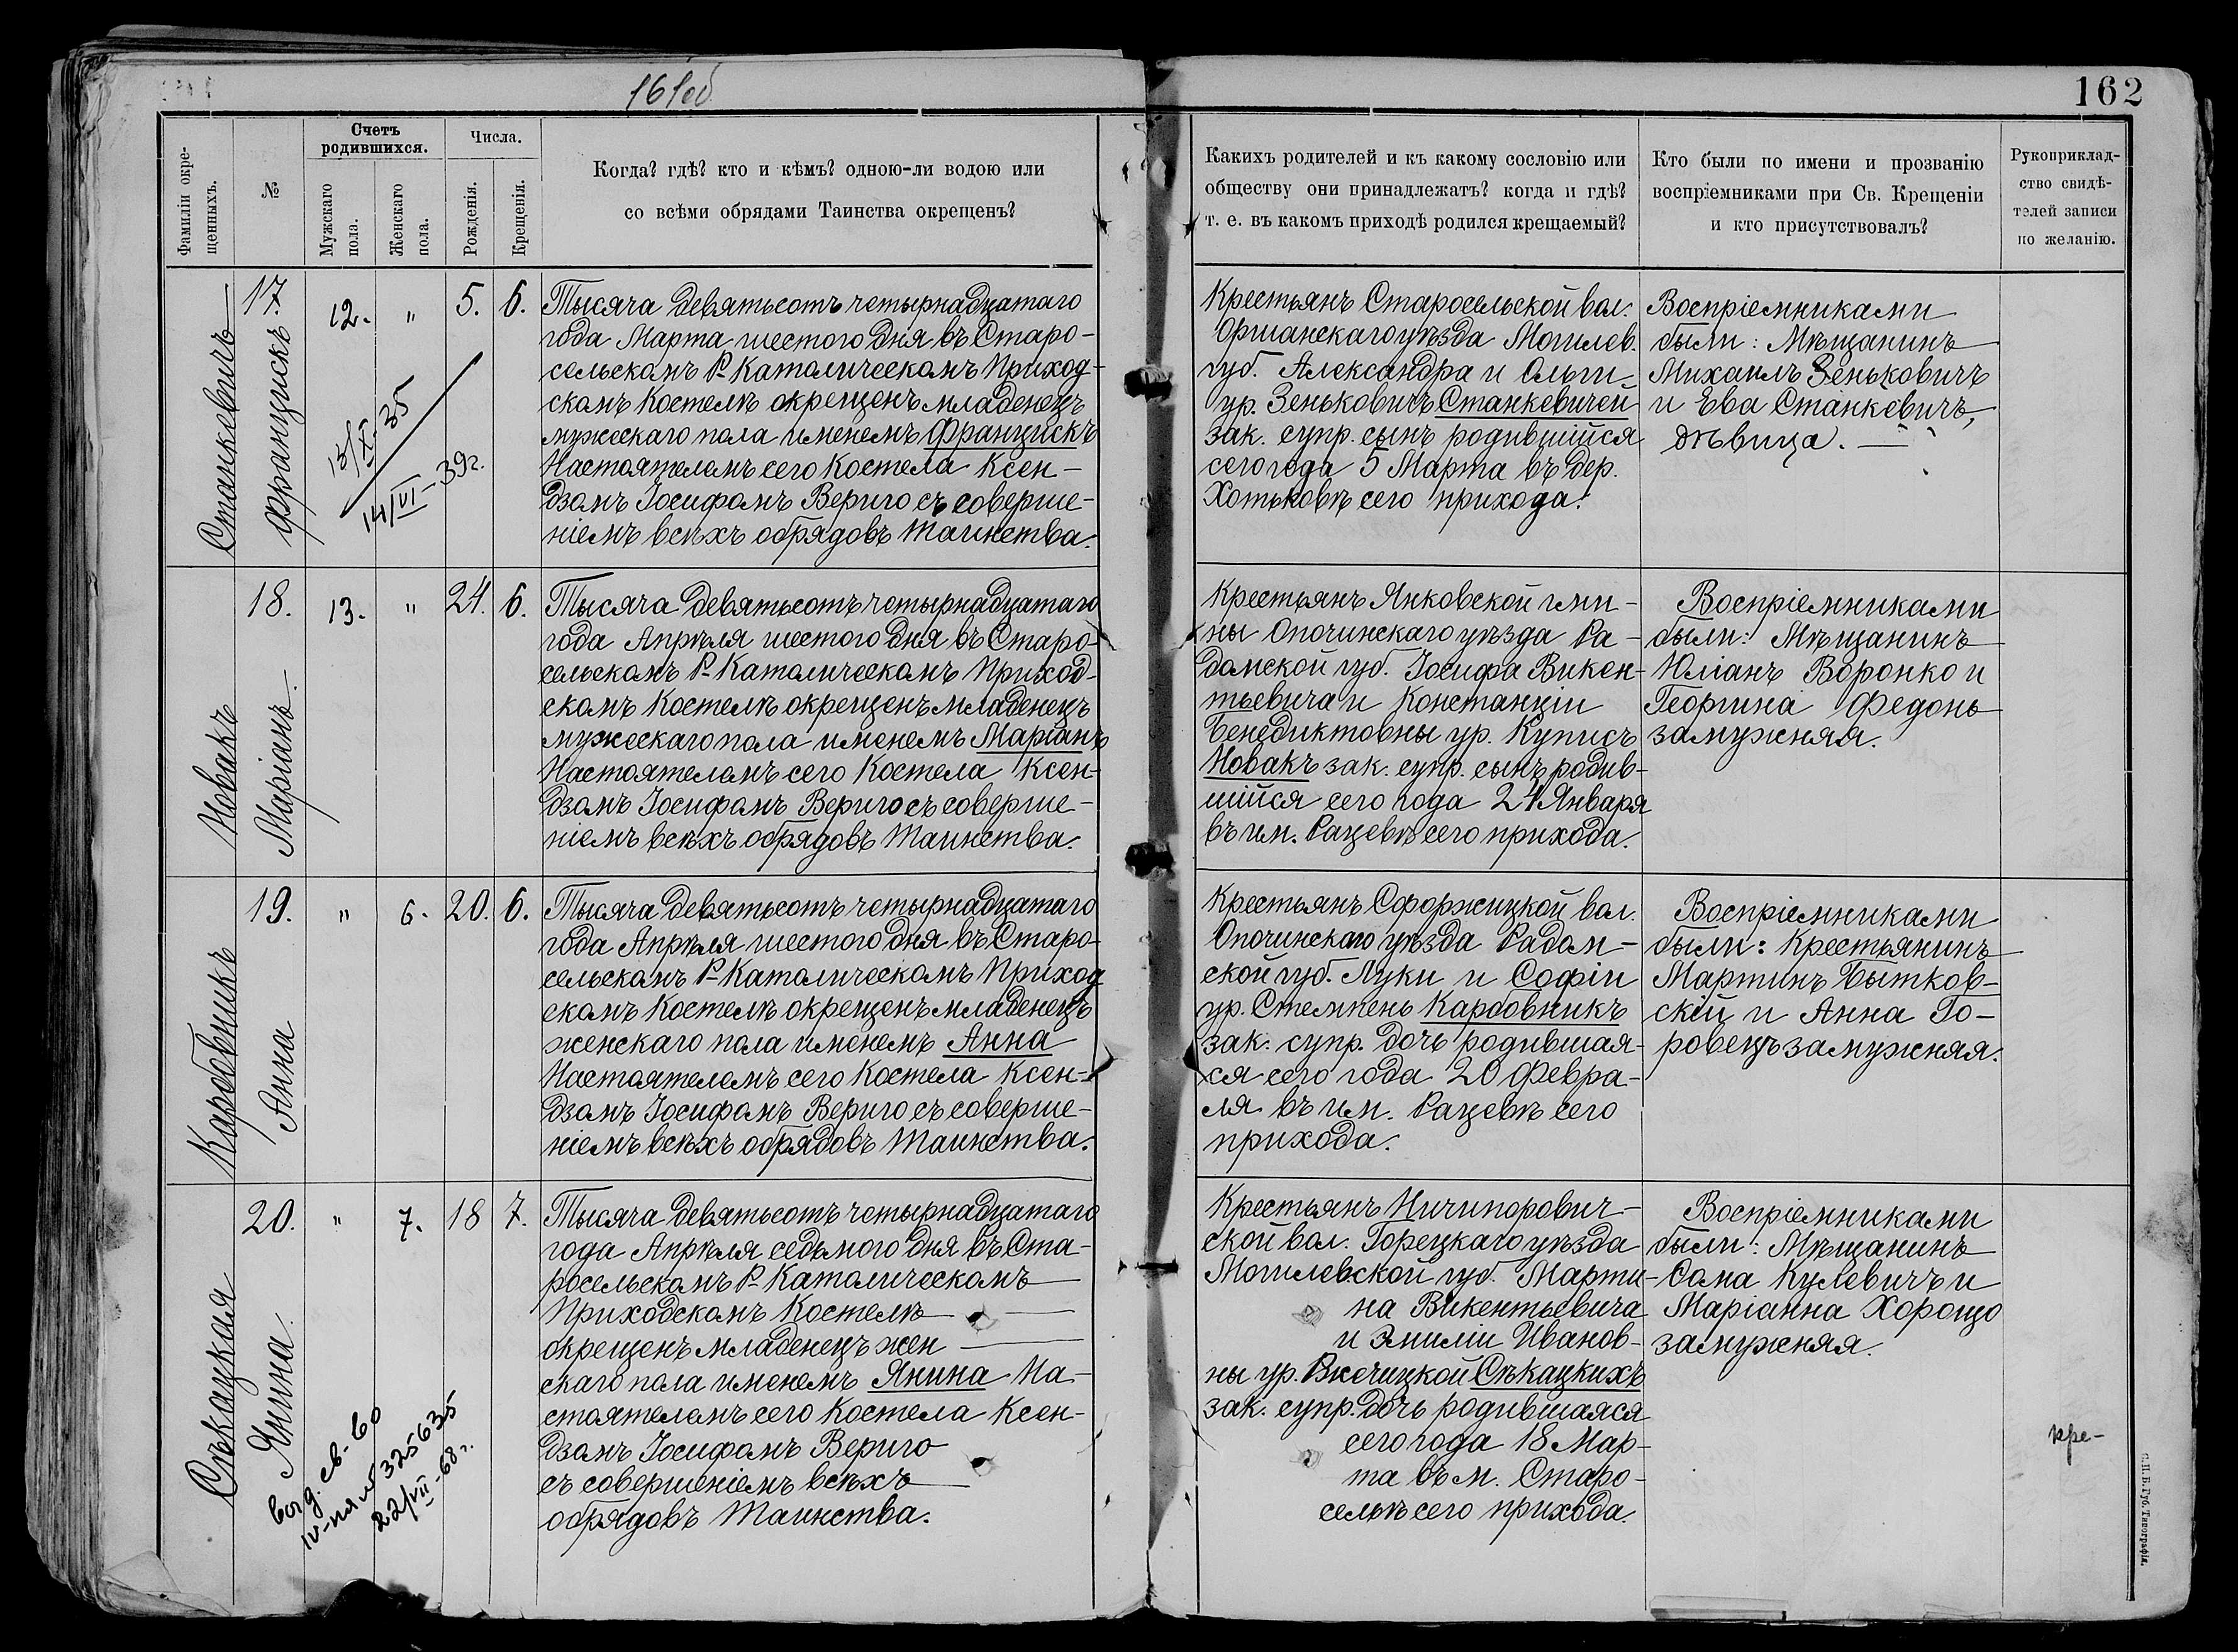 161об
162
Фамиліи окре-
щенныхъ.
№
Счетъ
родившихся.
Мужскаго
пола.
Женскаго
пола.
Числа.
Рожденія.
Крещенія.
Когда? гдѣ? кто и кѣмъ? одною-ли водою или
со всѣми обрядами Таинства окрещенъ?
Какихъ родителей и къ какому сословію или
обществу они принадлежатъ? когда и гдѣ?
т. е. въ какомъ приходѣ родился крещаемый?
Кто были по имени и прозванію
воспріемниками при Св. Крещеніи
и кто присутствовалъ?
Рукоприклад-
ство свидѣ-
телей записи
по желанію.
Станкевичъ
Францискъ
17.
12.
"
5.
6.
13/XI-35
14/VI-39г.
Тысяча девятьсотъ четырнадцатаго
года Марта шестого дня въ Старо-
сельскомъ Р-Католическомъ Приход-
скомъ Костелѣ окрещенъ младенецъ
мужескаго пола именемъ Францискъ
Настоятелемъ сего Костела Ксен-
дзомъ Іосифомъ Вериго съ соверше-
ніемъ всѣхъ обрядовъ Таинства.
Крестьянъ Старосельской вол.
Оршанскаго уѣзда Могилев.
губ. Александра и Ольги
ур. Зеньковичъ Станкевичей
зак. супр. сынъ родившійся
сего года 5 Марта въ дер.
Хотьковѣ сего прихода.
Воспріемниками
были: Мѣщанинъ
Михаилъ Зеньковичъ
и Ева Станкевичъ,
дѣвица.
Новакъ
Маріанъ.
18.
13.
"
24.
6.
Тысяча девятьсотъ четырнадцатаго
года Апрѣля шестого дня въ Старо-
сельскомъ Р-Католическомъ Приход-
скомъ Костелѣ окрещенъ младенецъ
мужескаго пола именемъ Маріанъ
Настоятелемъ сего Костела Ксен-
дзомъ Іосифомъ Вериго съ соверше-
ніемъ всѣхъ обрядовъ Таинства.
Крестьянъ Янковской гми-
ны Опочинскаго уѣзда Ра-
домской губ. Іосифа Викен-
тьевича и Констанціи
Бенедиктовны ур. Куписъ
Новакъ зак. супр. сынъ родив-
шійся сего года 24 Января
въ им. Рацевѣ сего прихода.
Воспріемниками
были: Мѣщанинъ
Юліанъ Воронко и
Георгина Федонь
замужняя.
Карбовникъ
Анна
19.
"
6.
20.
6.
Тысяча девятьсотъ четырнадцатаго
года Апрѣля шестого дня въ Старо-
сельскомъ Р-Католическомъ Приход
скомъ Костелѣ окрещенъ младенецъ
женскаго пола именемъ Анна
Настоятелемъ сего Костела Ксен-
дзомъ Іосифомъ Вериго съ соверше-
ніемъ всѣхъ обрядовъ Таинства.
Крестьянъ Сфоржицкой вол.
Опочинскаго уѣзда Радом-
ской губ. Луки и Софіи
ур. Стемпень Карбовникъ
зак. супр. дочь родившая-
ся сего года 20 Февра-
ля въ им. Рацевѣ сего
прихода.
Воспріемниками
были: Крестьянинъ
Мартинъ Бытков-
скій и Анна Го-
ровецъ замужняя.
Сѣкацкая
Янина
20.
"
7.
18
7.
выд. св-во
IV-ПЯ № 325635
22/VII-68г.
Тысяча девятьсотъ четырнадцатаго
года Апрѣля седьмого дня въ Ста-
росельскомъ Р-Католическомъ
Приходскомъ Костелѣ
окрещенъ младенецъ жен
скаго пола именемъ Янина На-
стоятелемъ сего Костела Ксен-
дзомъ Іосифомъ Вериго
съ совершеніемъ всѣхъ
обрядовъ Таинства.
Крестьянъ Ничипорович-
ской вол. Горецкаго уѣзда
Могилевской губ. Марти-
на Викентьевича
и Эмиліи Иванов-
ны ур. Сѣкацкихъ
зак. супр. дочь родившаяся
сего года 18 Мар-
та въ м. Старо-
сельѣ сего прихода.
Воспріемниками
были: Мѣщанинъ
Сама Кулевичъ и
Маріанна Хорошо
замужняя.
кре-
С.П.Б. Губ. Типографія.